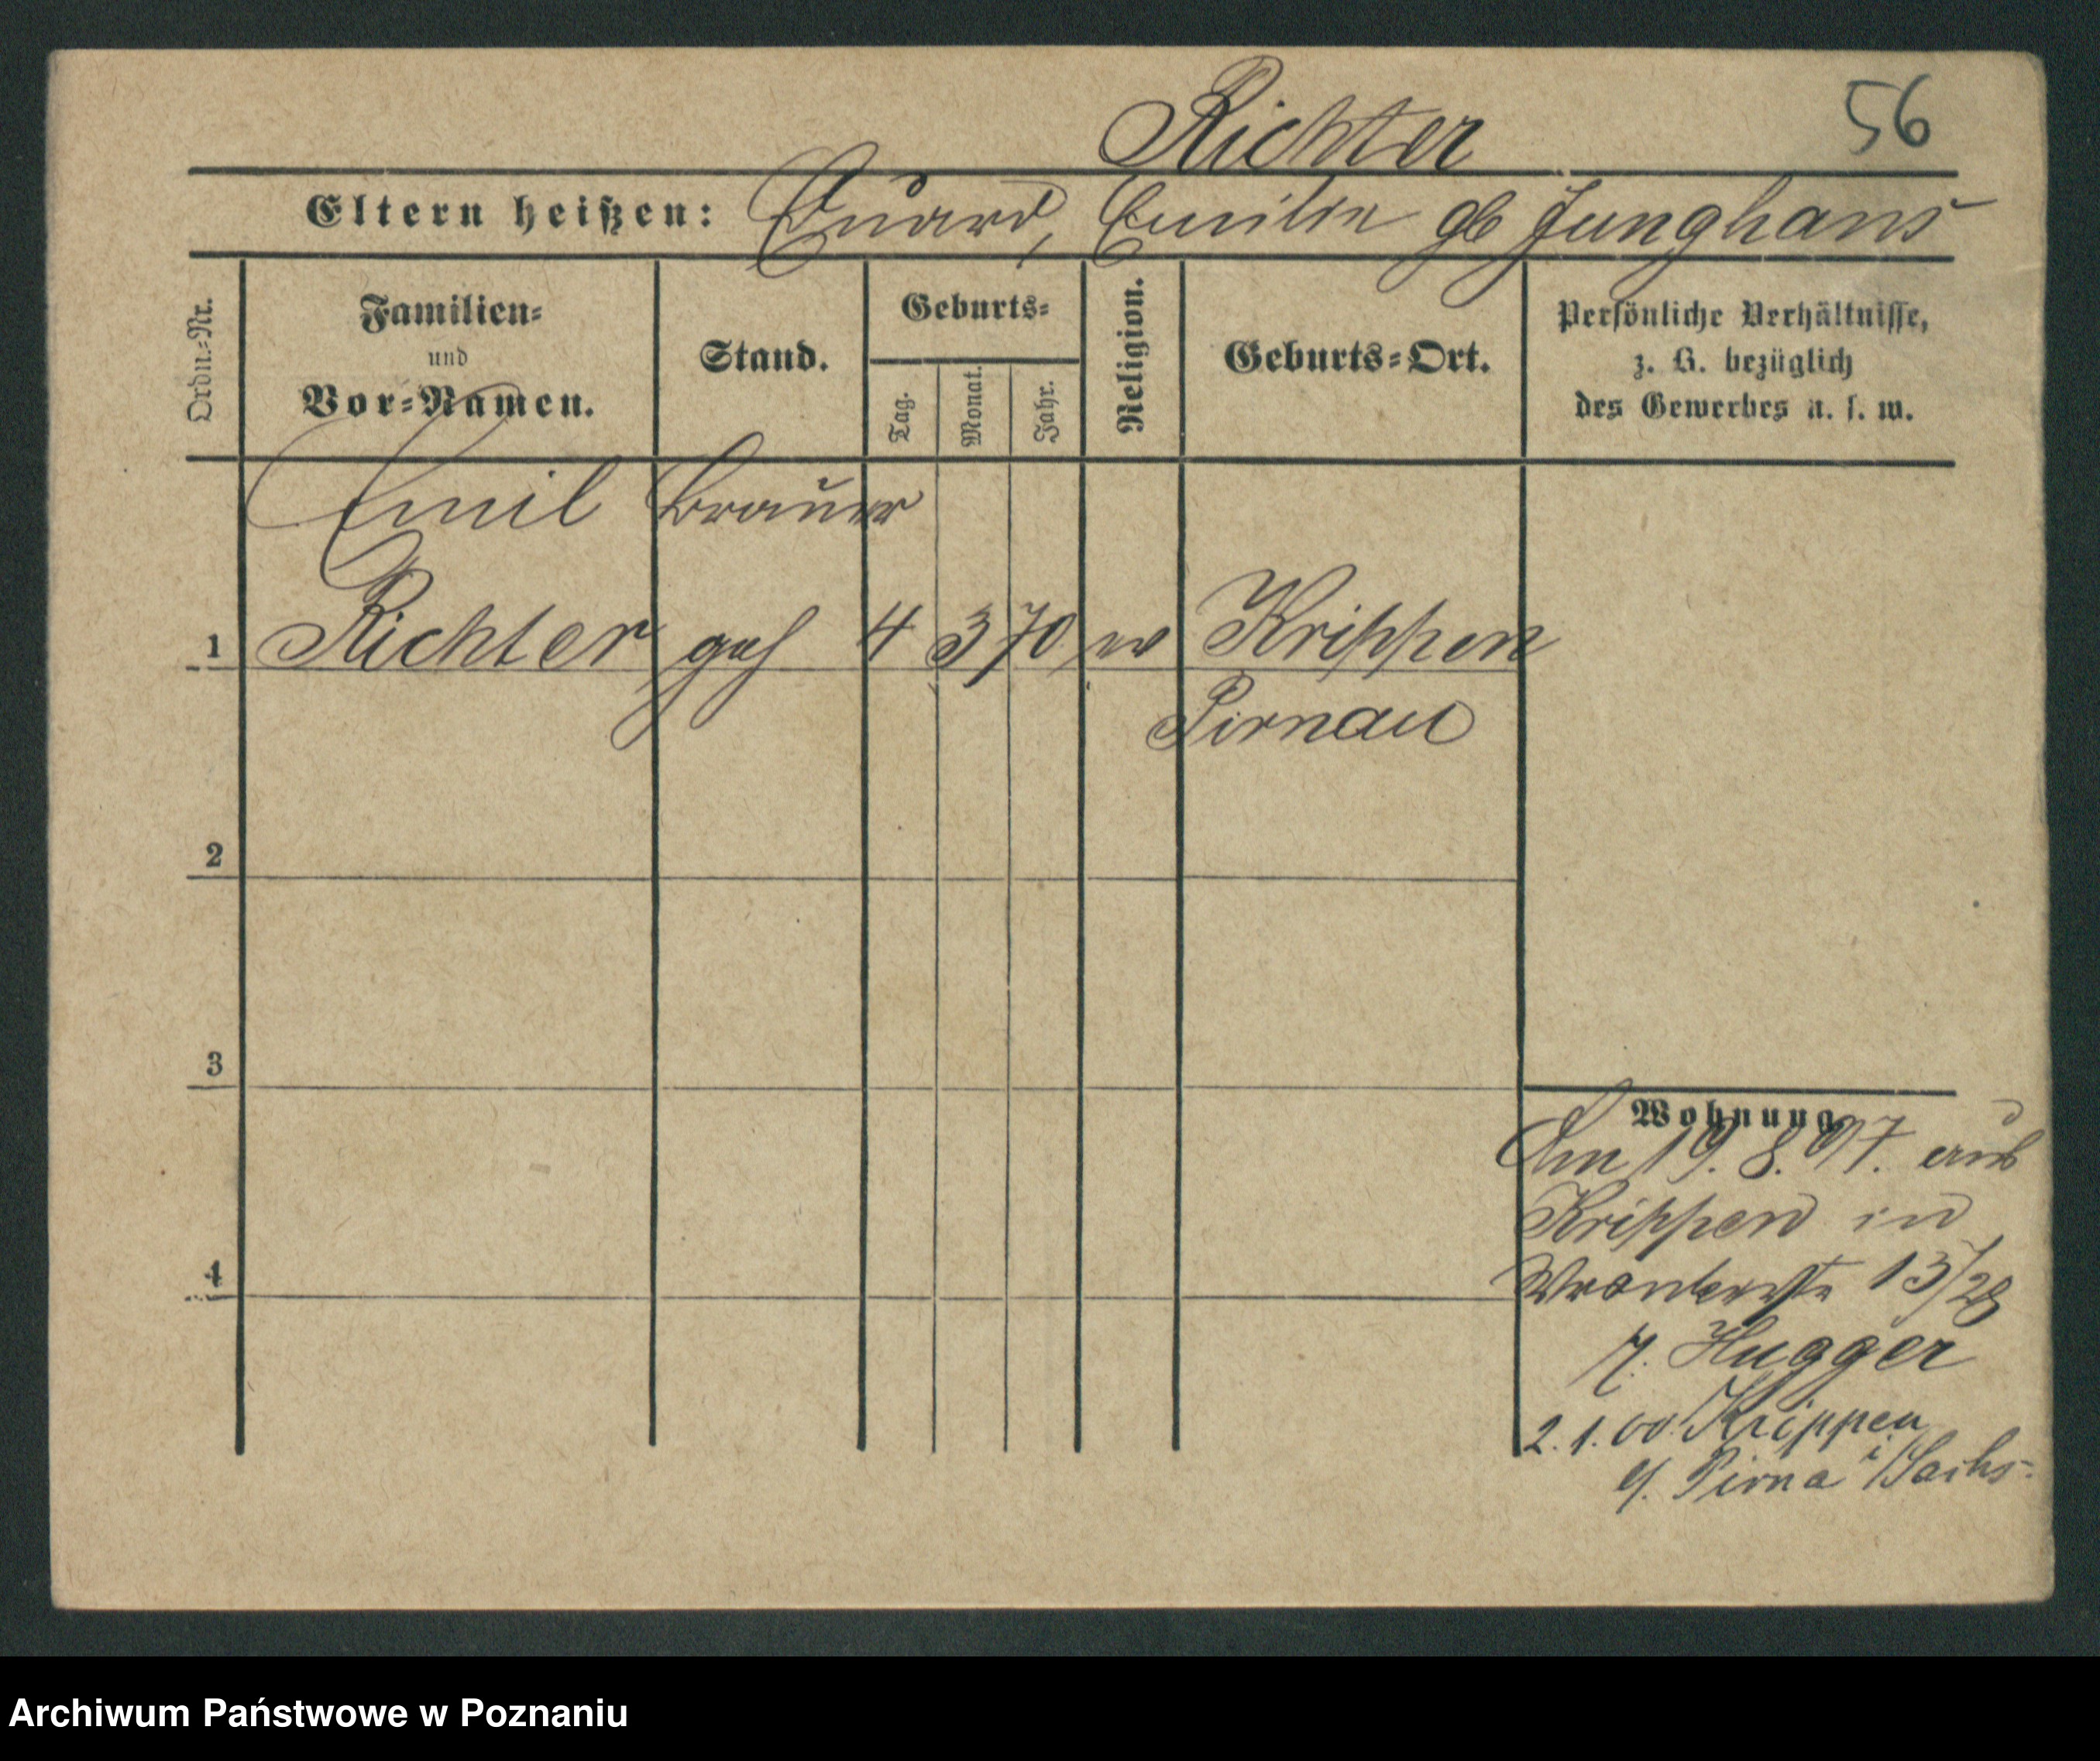 Richter 56
Eltern heißen: Eduard, Emilie gb Junghans
Ordn.-Nr.
Familien-
und
Vor-Namen.
Stand.
Geburts-
Tag.
Monat.
Jahr.
Religion.
Geburts-Ort.
Persönliche Verhältnisse,
z. B. bezüglich
des Gewerbes u. s. w.
Emil Brauer
1 Richter 4 3 70 ev Krippen
Pirnau
2
3
4
Wohnung
Am 19. 8. 97. aus
Krippen in
13/28
Hugger
2. 1. 00. Krippen
Pirna i/Sachs-
Archiwum Państwowe w Poznaniu